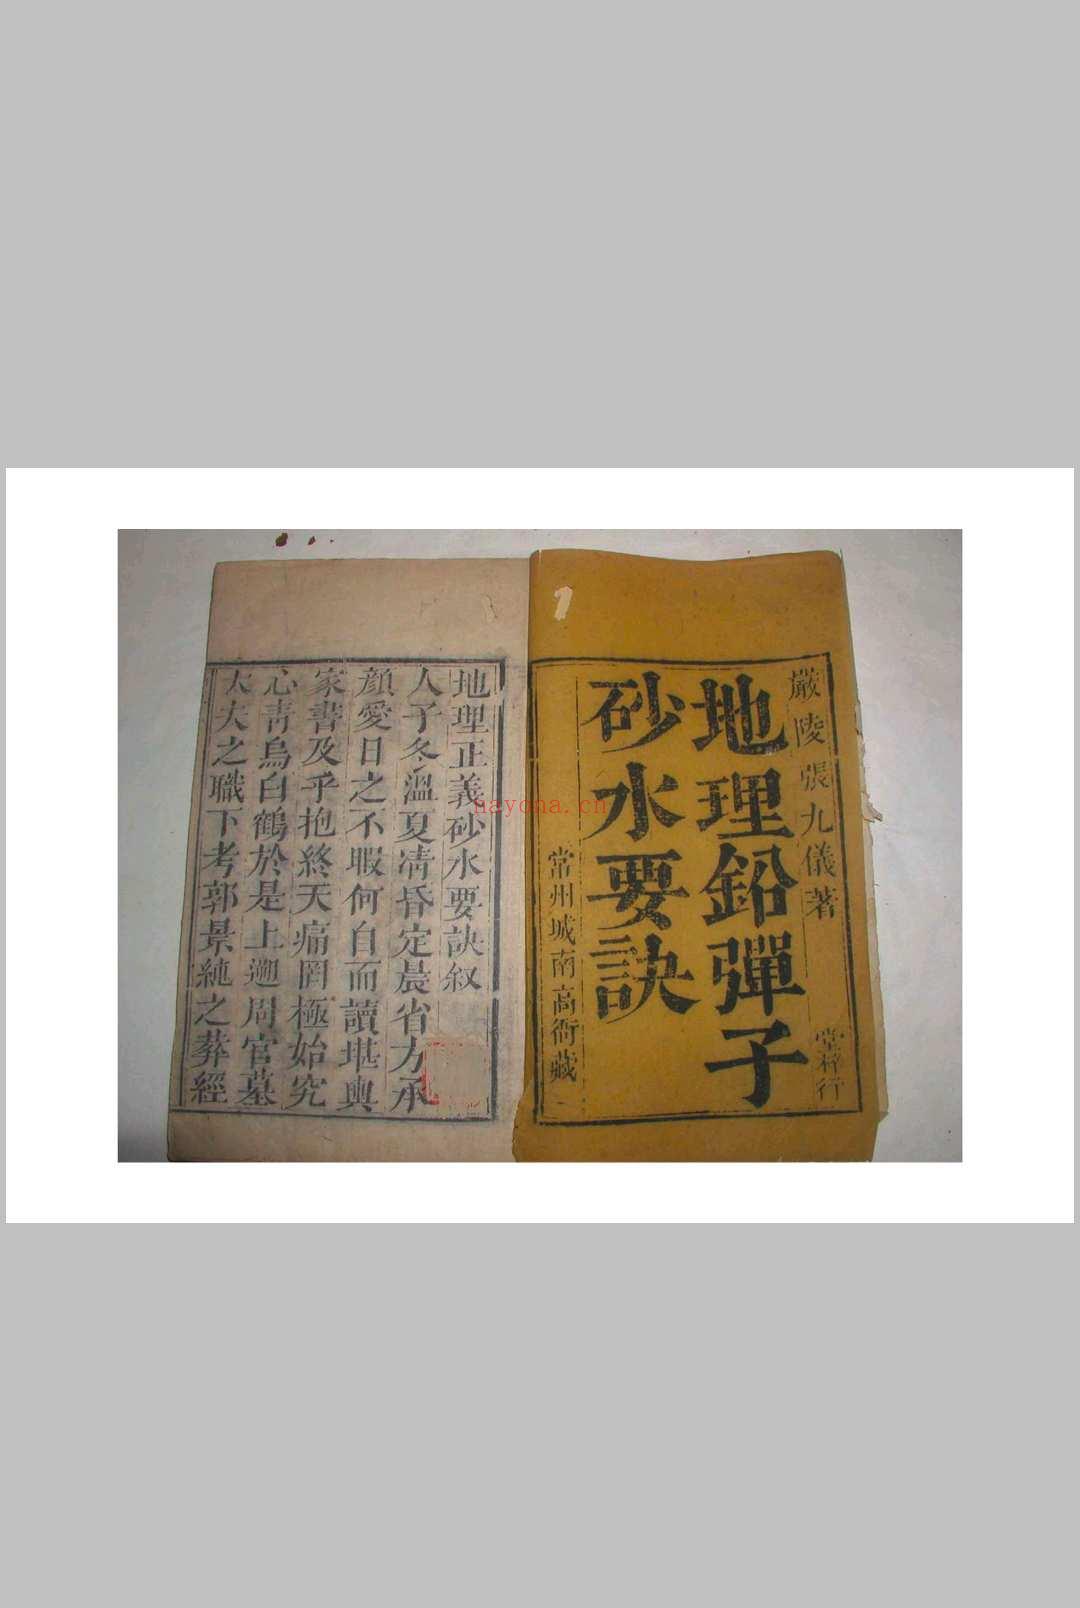 嚴陵張九儀著
堂梓行
地理鉛彈子
砂水要訣
常州城南高衙藏
地理正義砂水要訣叙
人子冬溫夏凊昏定晨省方承
顏愛日之不暇何自而讀堪輿
家書及乎抱終天痛罔極始究
心靑烏白鶴於是上遡周官墓
大夫之職下考郭景純之葬經
nayona.cn